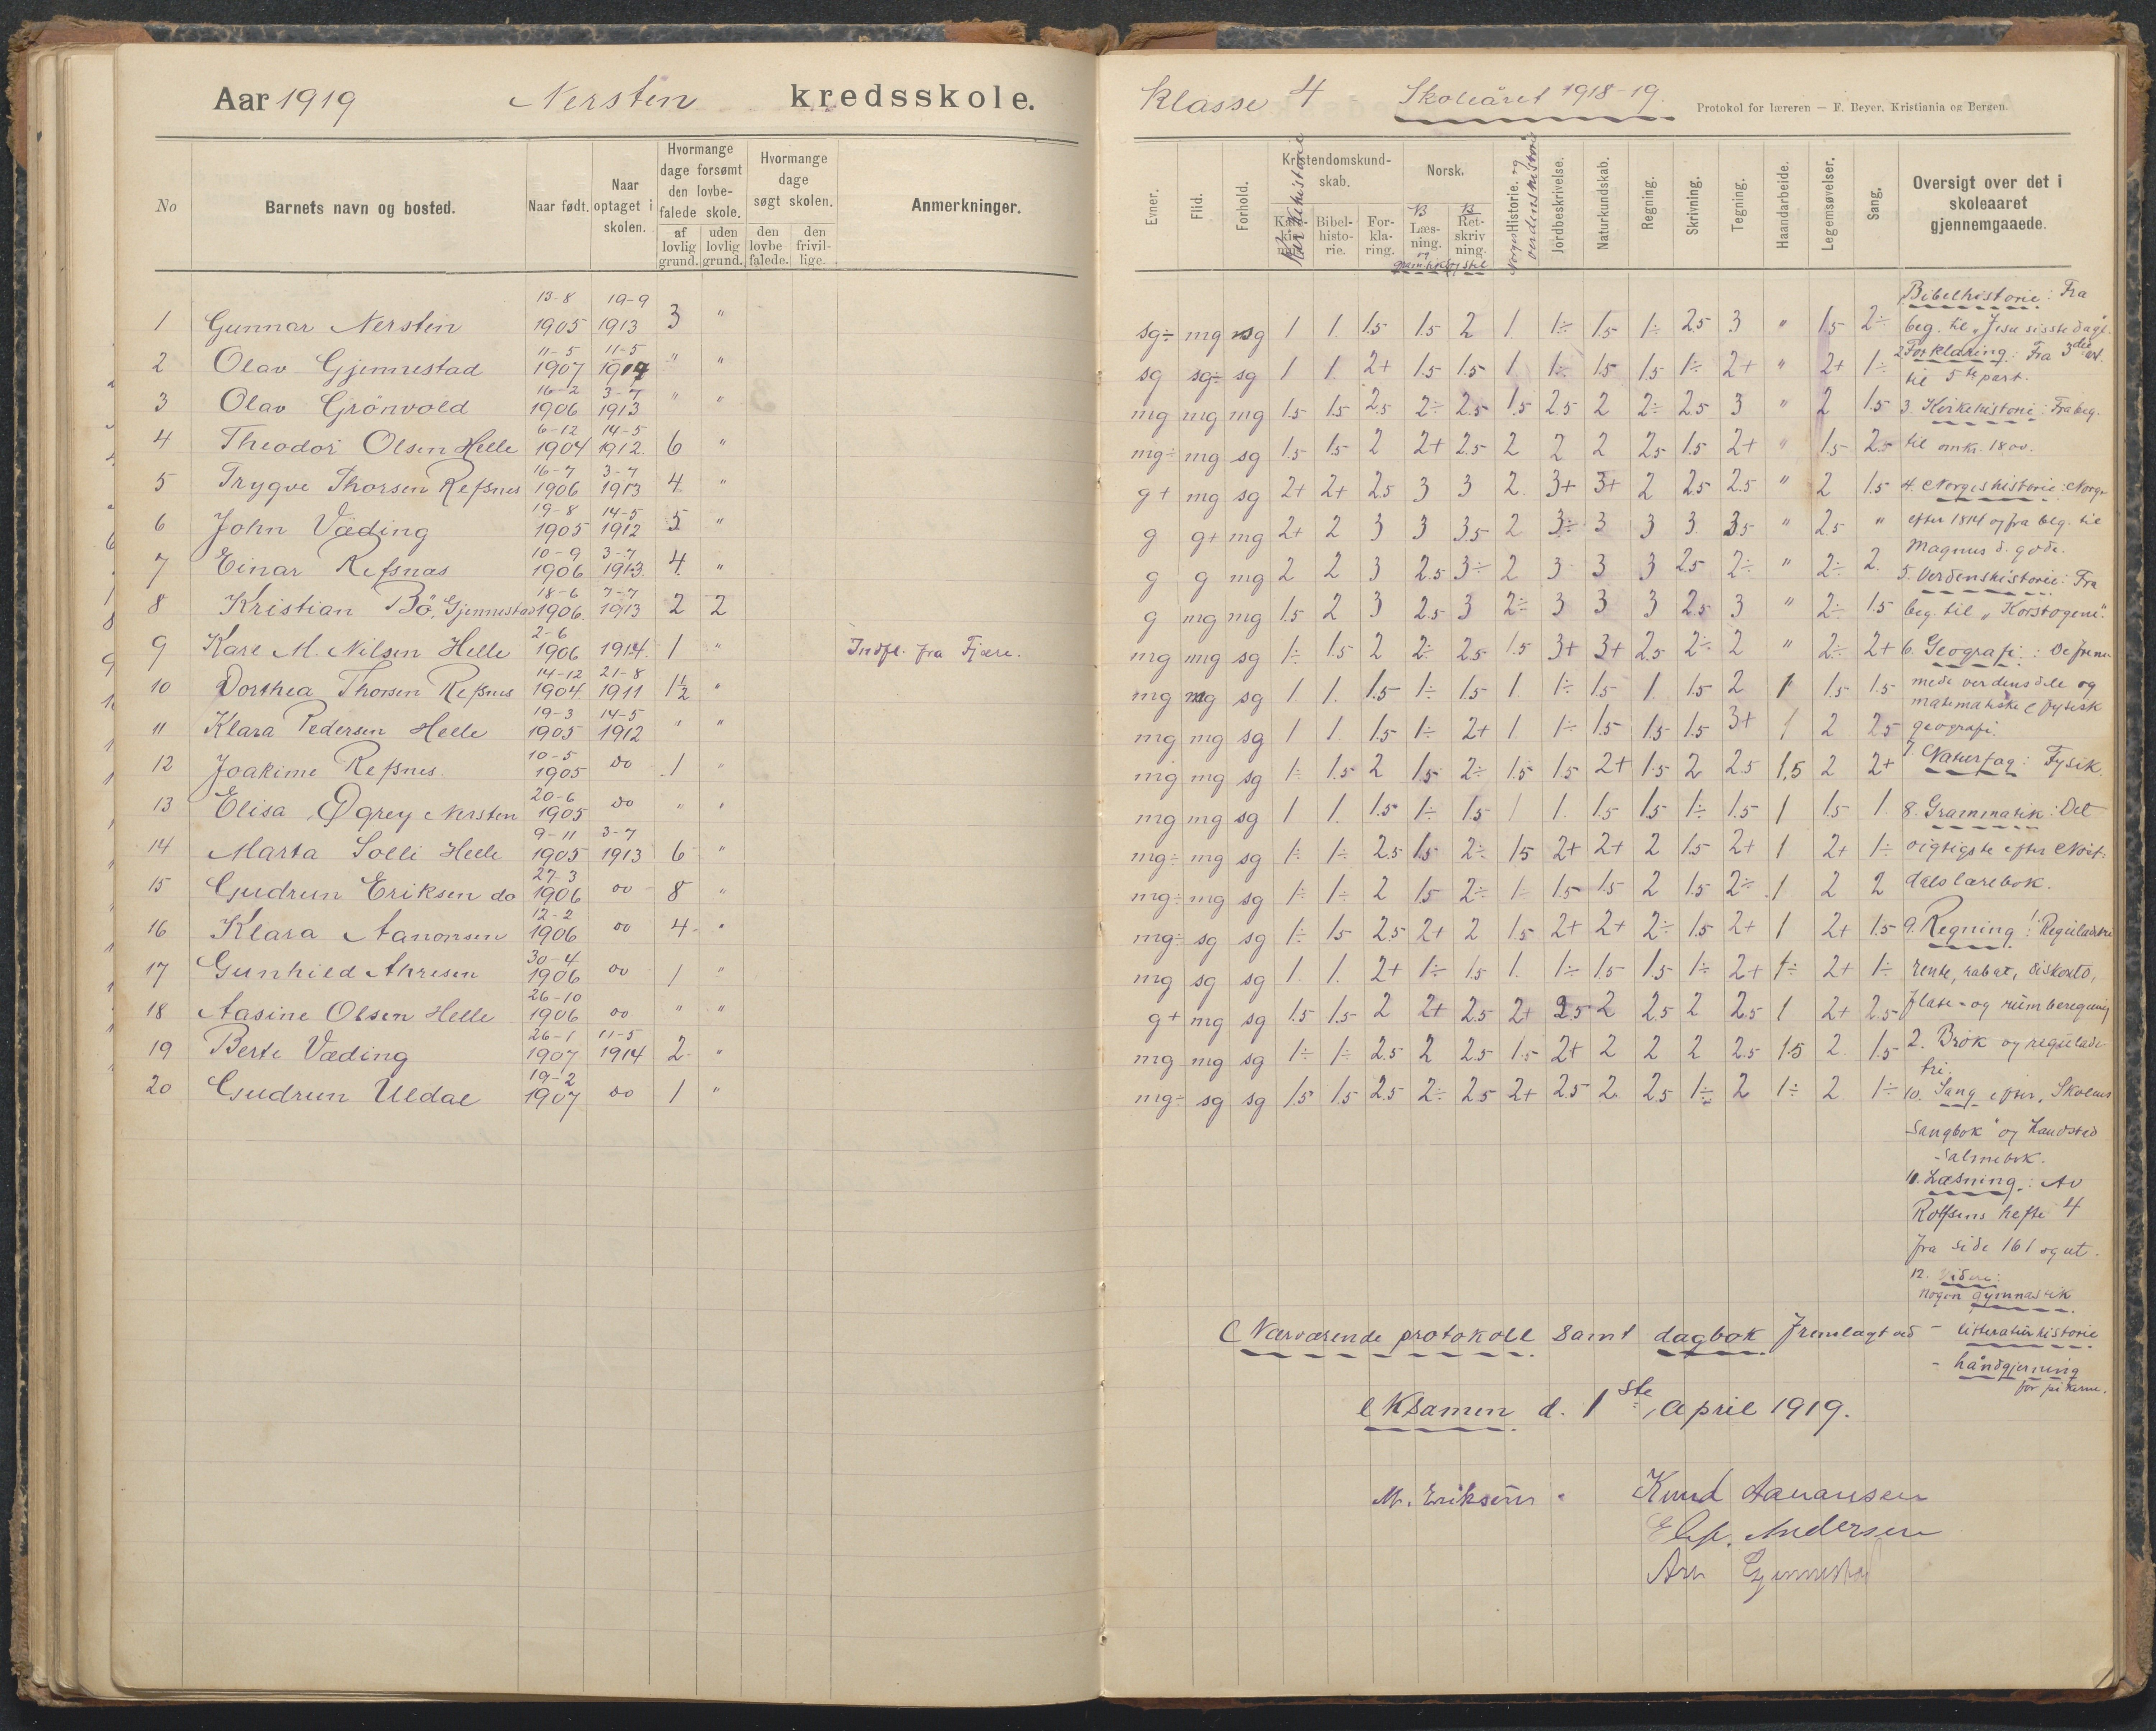 Aar 1919 Nersten kredsskole.
No Barnets navn og bosted. Naar født. Naar optaget i skolen. Hvormange dage forsømt den lovbefalede skole. af lovlig grund. uden lovlig grund. Hvormange dage søgt skolen. den lovbefalede. den frivillige. Anmerkninger.
1 Gunnar Nersten 13-8 1905 19-9 1913 3 "
2 Olav Gjennestad 11-5 1907 11-5 1914 " "
3 Olav Grönvold 16-2 1906 3-7 1913 " "
4 Theodor Olsen Helle 6-12 1904 14-5 1912. 6 "
5 Trygve Thorsen Refsnes 16-7 1906 3-7 1913 4. "
6 John Væding 19-8 1905 14-5 1912 5 "
7 Einar Refsnæs 10-9 1906 3-7 1913. 4. "
8 Kristian Bö, Gjennestad 18-6 1906. 7-7 1913 2 2
9 Kare M. Nilsen Helle 2-6 1906 1914. 1 " Indfl. fra Fjære.
10 Dorthea Thorsen Refsnes 14-12 1904. 21-8 1911 1½ "
11 Klara Pedersen Helle 19-3 1905 14-5 1912 " "
12 Joakime Refsnes. 10-5 1905 do 1 "
13 Elisa Øgrey Nersten 20-6 1905 do " "
14 Marta Solli Helle 9-11 1905 3-7 1913 6 "
15 Gudrun Eriksen do 27-3 1906 do 8 "
16 Klara Aanonsen 12-2 1906 do 4. "
17 Gunhild 30-4 1906 do 1 "
18 Aasine Olsen Helle 26-10 1906 do " "
19 Berte Væding 26-1 1907 11-5 1914 2 "
20 Gudrun Uldal 19-2 1907 do 1 "
Klasse 4 Skoleåret 1918-19. Protokol for læreren — F. Beyer, Kristiania og Bergen.
Evner. Flid. Forhold. Kristendomskundskab. Kirkehistorie Bibelhistorie. Forklaring. Norsk. B Læsning. og gramatik B Retskrivning. og stil Norges Historie. og verdenshistorie Jordbeskrivelse. Naturkundskab. Regning. Skrivning. Tegning. Haandarbeide. Legemsøvelser. Sang. Oversigt over det i skoleaaret gjennemgaaede.
sg÷ mg sg 1 1. 1.5 1.5 2 1 1÷ 1.5 1÷ 2.5 3 " 1.5 2÷
sg sg÷ sg 1 1. 2+ 1.5 1.5 1 1÷ 1.5 1.5 1÷ 2+ " 2+ 1÷
mg mg mg 1.5 1.5 2.5 2÷ 2.5 1.5 2.5 2 2÷ 2.5 3 " 2 1.5
mg÷ mg sg 1.5 1.5 2 2+ 2.5 2 2 2 2.5 1.5 2+ " 1.5 2.5
g+ mg sg 2+ 2+ 2.5 3 3 2. 3+ 3+ 2 2.5 2.5 " 2 1.5
g g+ mg 2+ 2 3 3 3.5 2 3÷ 3 3 3. 3.5 " 2.5 "
g g mg 2 2 3 2.5 3÷ 2 3 3 3 2.5 2÷ " 2÷ 2.
g mg mg 1.5 2 3 2.5 3 2÷ 3 3 3 2.5 3 " 2÷ 1.5
mg mg sg 1÷ 1.5 2 2÷ 2.5 1.5 3+ 3+ 2.5 2÷ 2 " 2÷ 2+
mg mg sg 1. 1. 1.5 1÷ 1.5 1. 1÷ 1.5 1. 1.5 2 1 1.5 1.5
mg mg sg 1 1. 1.5 1÷ 2+ 1. 1÷ 1.5 1.5 1.5 3+ 1 2 2.5
mg mg sg 1÷ 1.5 2 1.5 2÷ 1.5 1.5 2+ 1.5 2 2.5 1.5 2 2+
mg mg sg 1 1. 1.5 1÷ 1.5 1 1. 1.5 1.5 1÷ 1.5 1 1.5 1
mg÷ mg sg 1÷ 1÷ 2.5 1.5 2÷ 1.5 2+ 2+ 2 1.5 2+ 1 2+ 1÷
mg÷ mg sg 1÷ 1÷ 2 1.5 2÷ 1÷ 1.5 1.5 2 1.5 2÷ 1 2 2
mg÷ sg sg 1÷ 1.5 2.5 2+ 2 1.5 2+ 2+ 2÷ 1.5 2+ 1 2+ 1.5
mg sg sg 1. 1. 2+ 1÷ 1.5 1. 1÷ 1.5 1.5 1÷ 2+ 1÷ 2+ 1÷
g+ mg sg 1.5 1.5 2 2+ 2.5 2+ 2.5 2 2.5 2 2.5 1 2+ 2.5
mg mg sg 1÷ 1÷ 2.5 2 2.5 1.5 2+ 2 2 2 2.5 1.5 2. 1.5
mg÷ sg sg 1.5 1.5 2.5 2÷ 2.5 2+ 2.5 2. 2.5 1÷ 2 1÷ 2 1÷
Bibelhistorie: Fra
beg. til „Jesu sisste dage".
2 Forklaring: Fra 3die art.
til 5te part.
3. Kirkehistorie: Fra beg.
til omkr. 1800.
4. Norgeshistorie: Norge
efter 1814 og fra beg. til
Magnus d. gode.
5. Verdenshistorie: Fra
beg. til „Korstogene".
6. Geografi: De fremmede
verdensdele og
matematiske & fysisk
geografi.
7. Naturfag: Fysik.
8. Grammatik: Det
vigtigste efter
dals lærebok.
9. Regning: Reguladetri
rente, rabat, diskonto,
flate- og rumberegning
2. Brøk og reguladetri.
10. Sang efter „Skolens
Sangbok" og Landstad
salmebok.
11. Læsning: Av
Rolfsens hefte 4
fra side 161 og ut.
12. Videre:
nogen gymnastik
- litteraturhistorie
- håndgjerning
for pikerne.
Nærværende protokoll samt dagbok fremlagt ved
eksamen d. 1ste april 1919.
M. Eriksen. Knud Aanansen
Andersen
Gjennestad